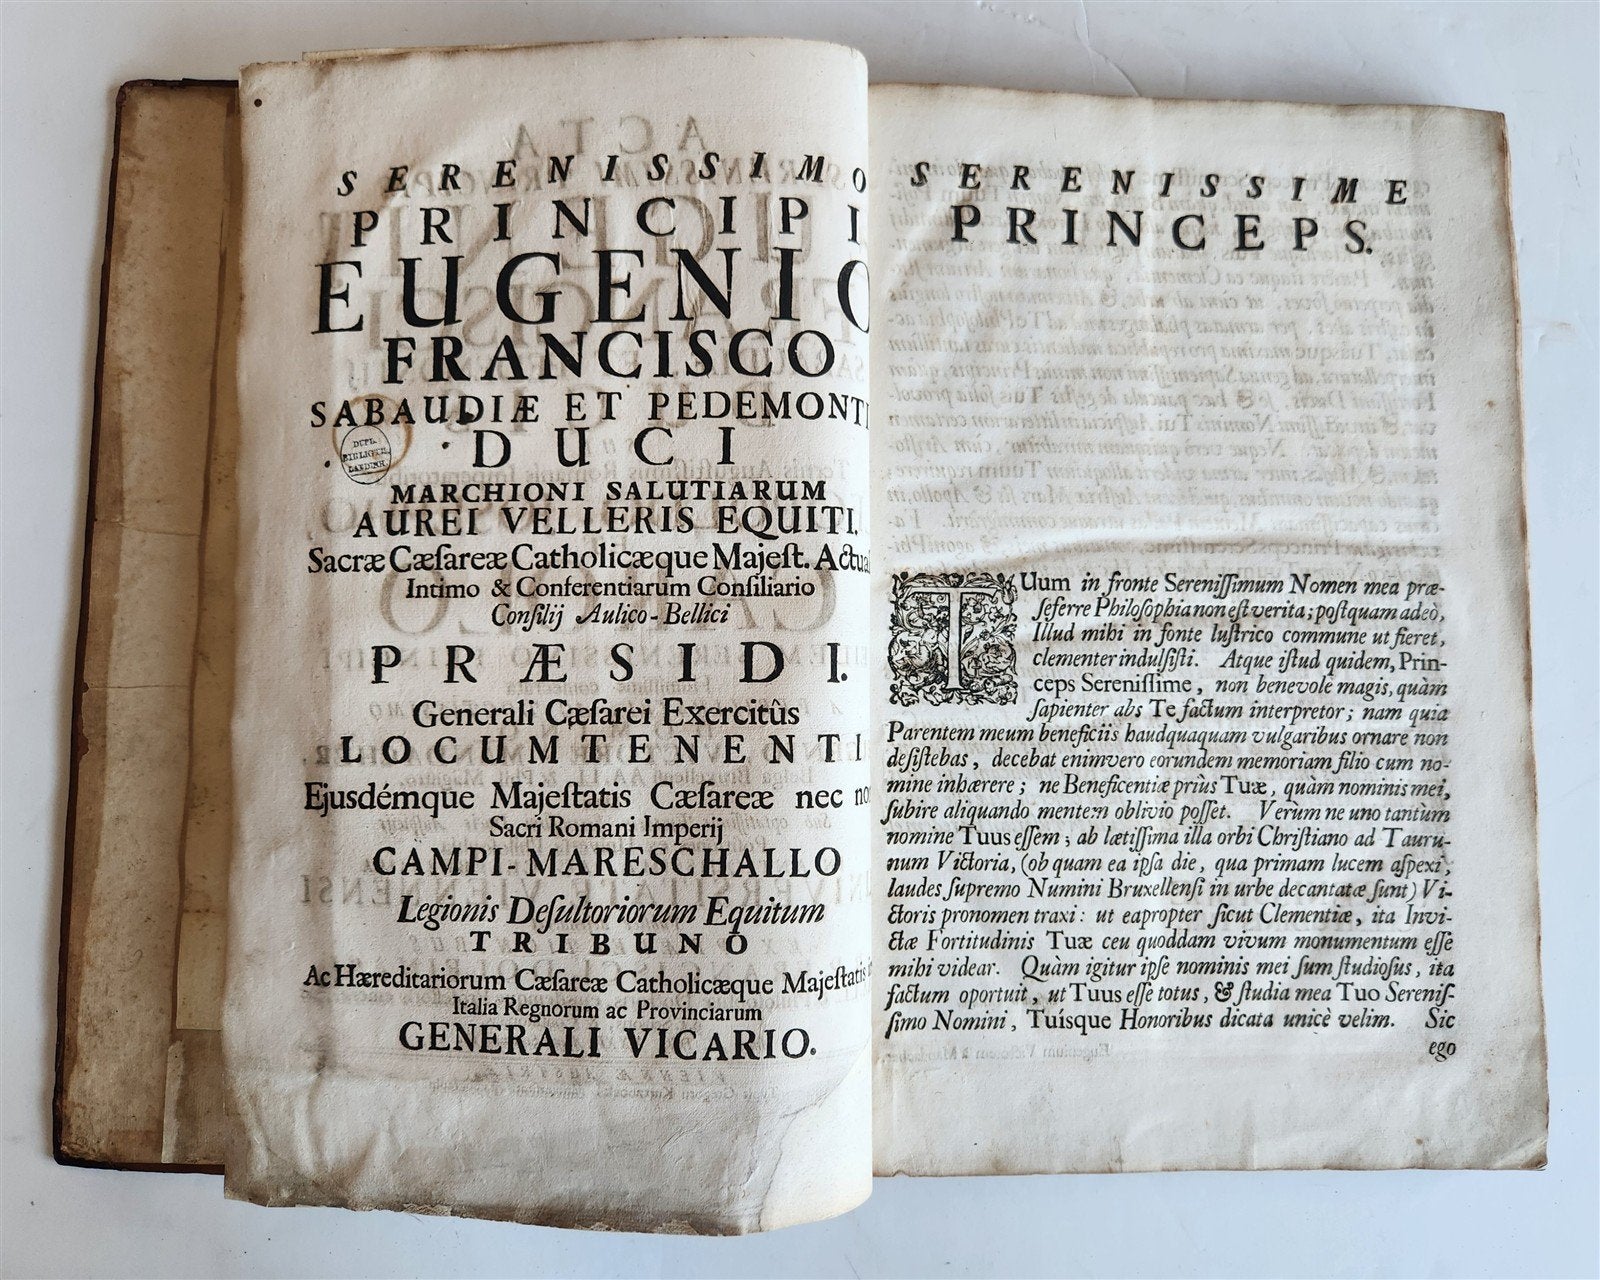 SERENISSIMO
PRINCIPI
EUGENIO
FRANCISCO
SABAUDIÆ ET PEDEMONTI
DUCI
DUPL.
BIBLIOTH.
MARCHIONI SALUTIARUM
AUREI VELLERIS EQUITI.
Sacræ Cæſareæ Catholicæque Majeſt. Actual
Intimo & Conferentiarum Conſiliario
Conſilij Aulico-Bellici
PRÆSIDI.
Generali Cæſarei Exercitûs
LOCUMTENENTI
Ejusdémque Majeſtatis Cæſareæ nec non
Sacri Romani Imperij
CAMPI-MARESCHALLO
Legionis Deſultoriorum Equitum
TRIBUNO
Ac Hæreditariorum Cæſareæ Catholicæque Majeſtatis
Italia Regnorum ac Provinciarum
GENERALI VICARIO.
SERENISSIME
PRINCEPS.
TUum in fronte Sereniſſimum Nomen mea præ-
ſeferre Philoſophia non eſt verita; poſtquam adeò,
Illud mihi in fonte luſtrico commune ut fieret,
clementer indulſiſti. Atque iſtud quidem, Prin-
ceps Sereniſſime, non benevolè magis, quàm
ſapienter abs Te factum interpretor; nam quia
Parentem meum beneficiis haudquaquam vulgaribus ornare non
deſiſtebas, decebat enimvero eorundem memoriam filio cum no-
mine inhærere; ne Beneficentiæ priùs Tuæ, quàm nominis mei,
ſubire aliquando mentem oblivio poſſet. Verùm ne uno tantùm
nomine Tuus eſſem; ab lætiſſima illa orbi Chriſtiano ad Tauru-
num Victoria, (ob quam ea ipſa die, qua primam lucem aſpexi;
laudes ſupremo Numini Bruxellenſi in urbe decantatæ ſunt) Vi-
ctoris pronomen traxi: ut eapropter ſicut Clementiæ, ita Invi-
ctæ Fortitudinis Tuæ ceu quoddam vivum monumentum eſſe
mihi videar. Quàm igitur ipſe nominis mei ſum ſtudioſus, ita
factum oportuit, ut Tuus eſſe totus, & ſtudia mea Tuo Sereniſ-
ſimo Nomini, Tuísque Honoribus dicata unicè velim. Sic
ego